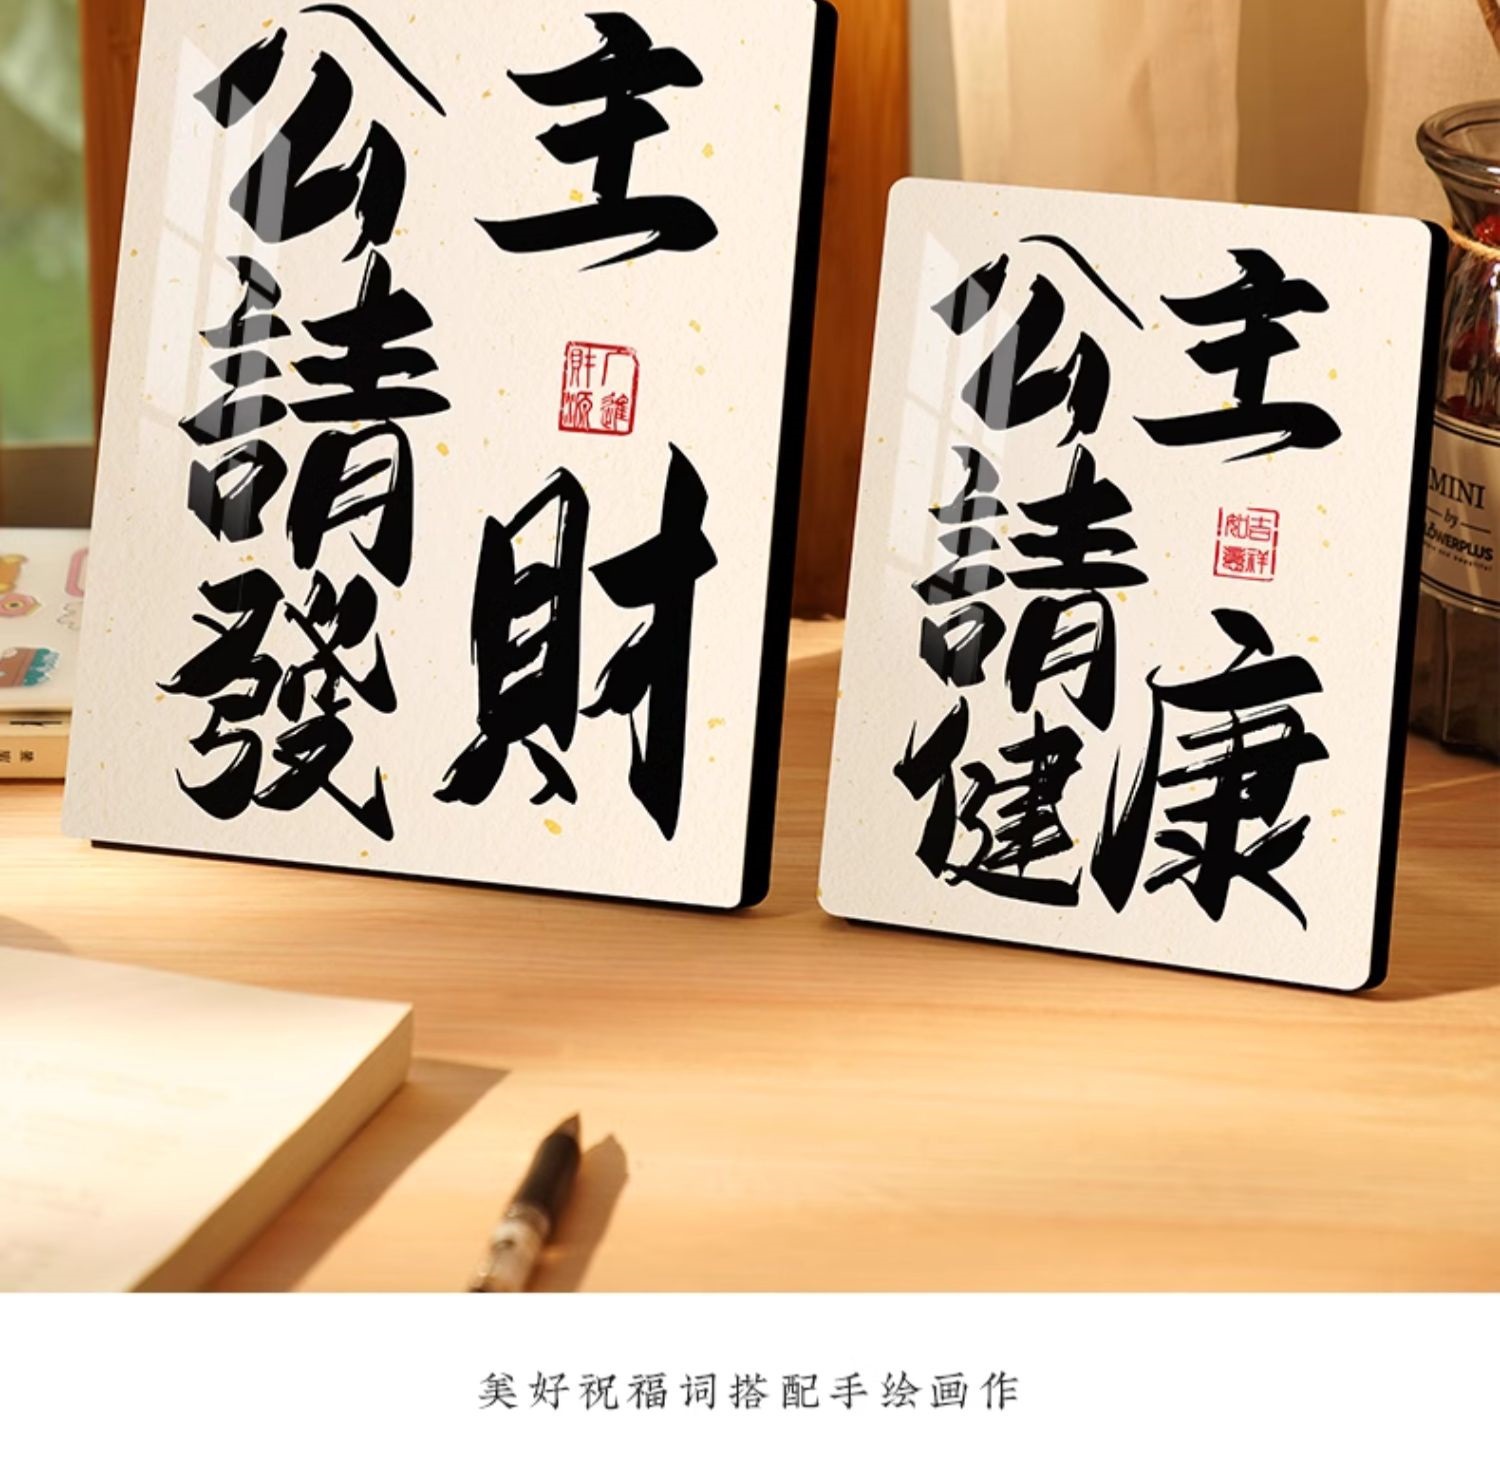 主公
請
發財
財源
广進
主公
請
健康
吉祥
如意
MINI
by
LOWERPLUS
美好祝福词搭配手绘画作